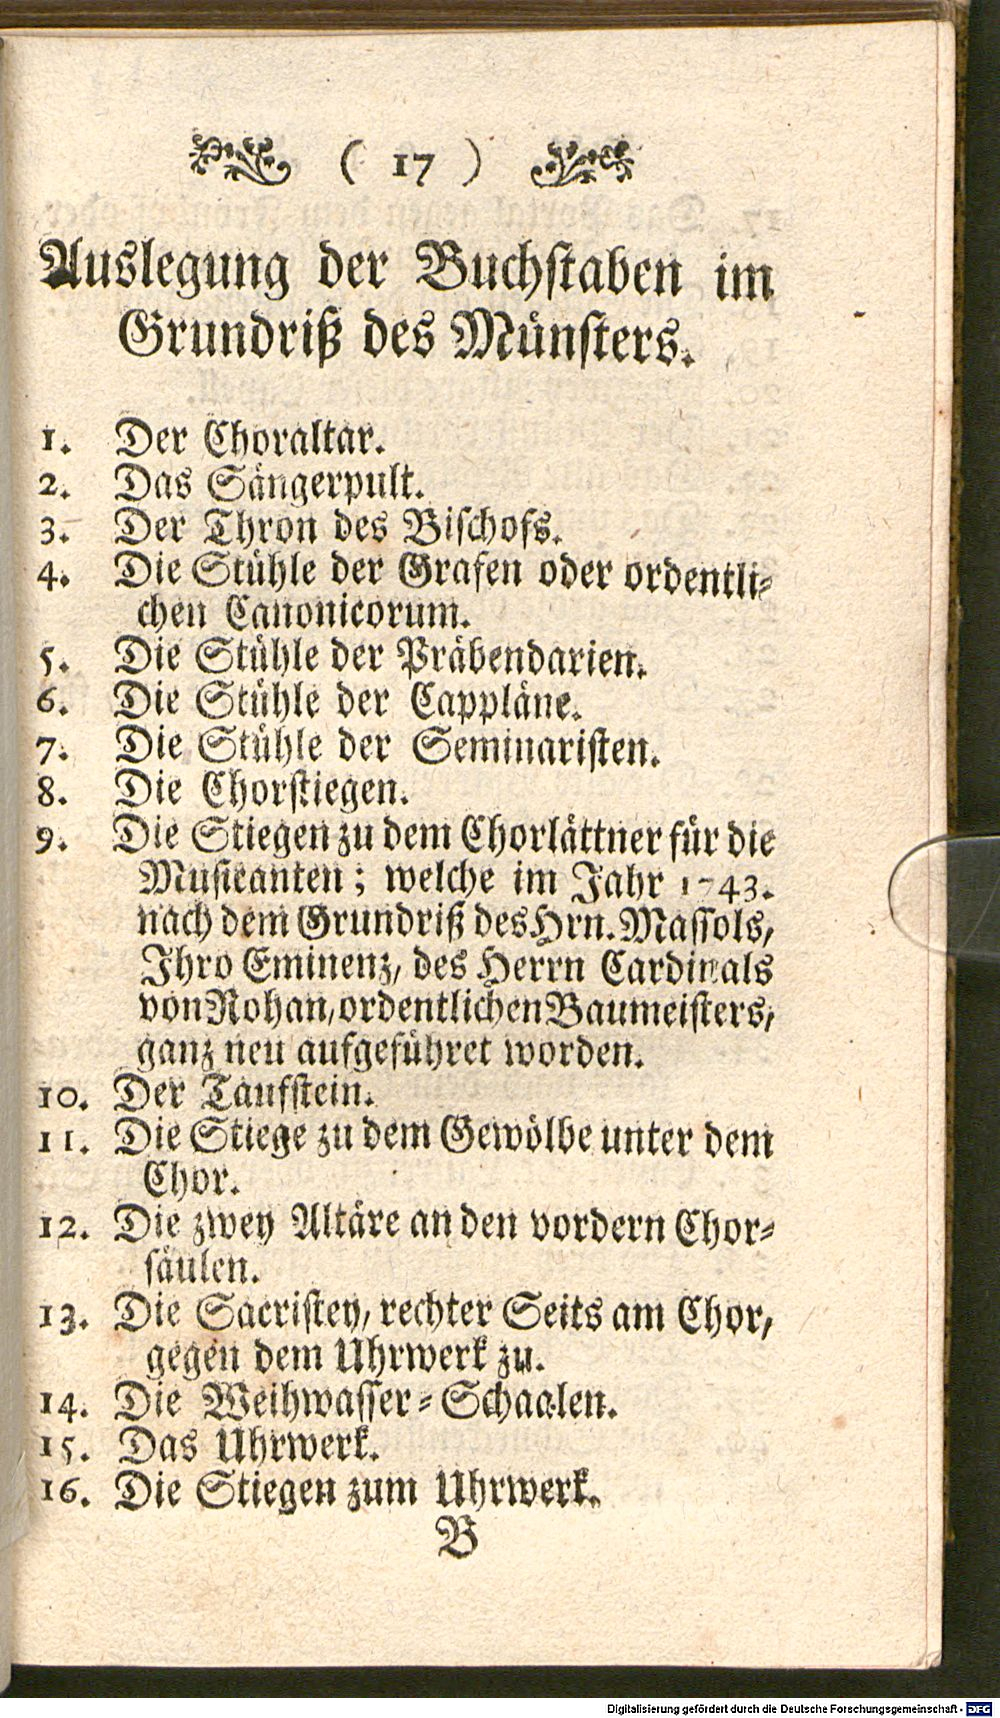 ( 17 )
Auslegung der Buchstaben im
Grundriß des Münsters.
1. Der Choraltar.
2. Das Sängerpult.
3. Der Thron des Bischofs.
4. Die Stühle der Grafen oder ordentli-
chen Canonicorum.
5. Die Stühle der Präbendarien.
6. Die Stühle der Cappläne.
7. Die Stühle der Seminaristen.
8. Die Chorstiegen.
9. Die Stiegen zu dem Chorlättner für die
Musicanten; welche im Jahr 1743.
nach dem Grundriß des Hrn. Massols,
Ihro Eminenz, des Herrn Cardinals
von Rohan, ordentlichen Baumeisters,
ganz neu aufgeführet worden.
10. Der Taufstein.
11. Die Stiege zu dem Gewölbe unter dem
Chor.
12. Die zwey Altäre an den vordern Chor-
säulen.
13. Die Sacristey, rechter Seits am Chor,
gegen dem Uhrwerk zu.
14. Die Weihwasser-Schaalen.
15. Das Uhrwerk.
16. Die Stiegen zum Uhrwerk.
B
Digitalisierung gefördert durch die Deutsche Forschungsgemeinschaft - DFG